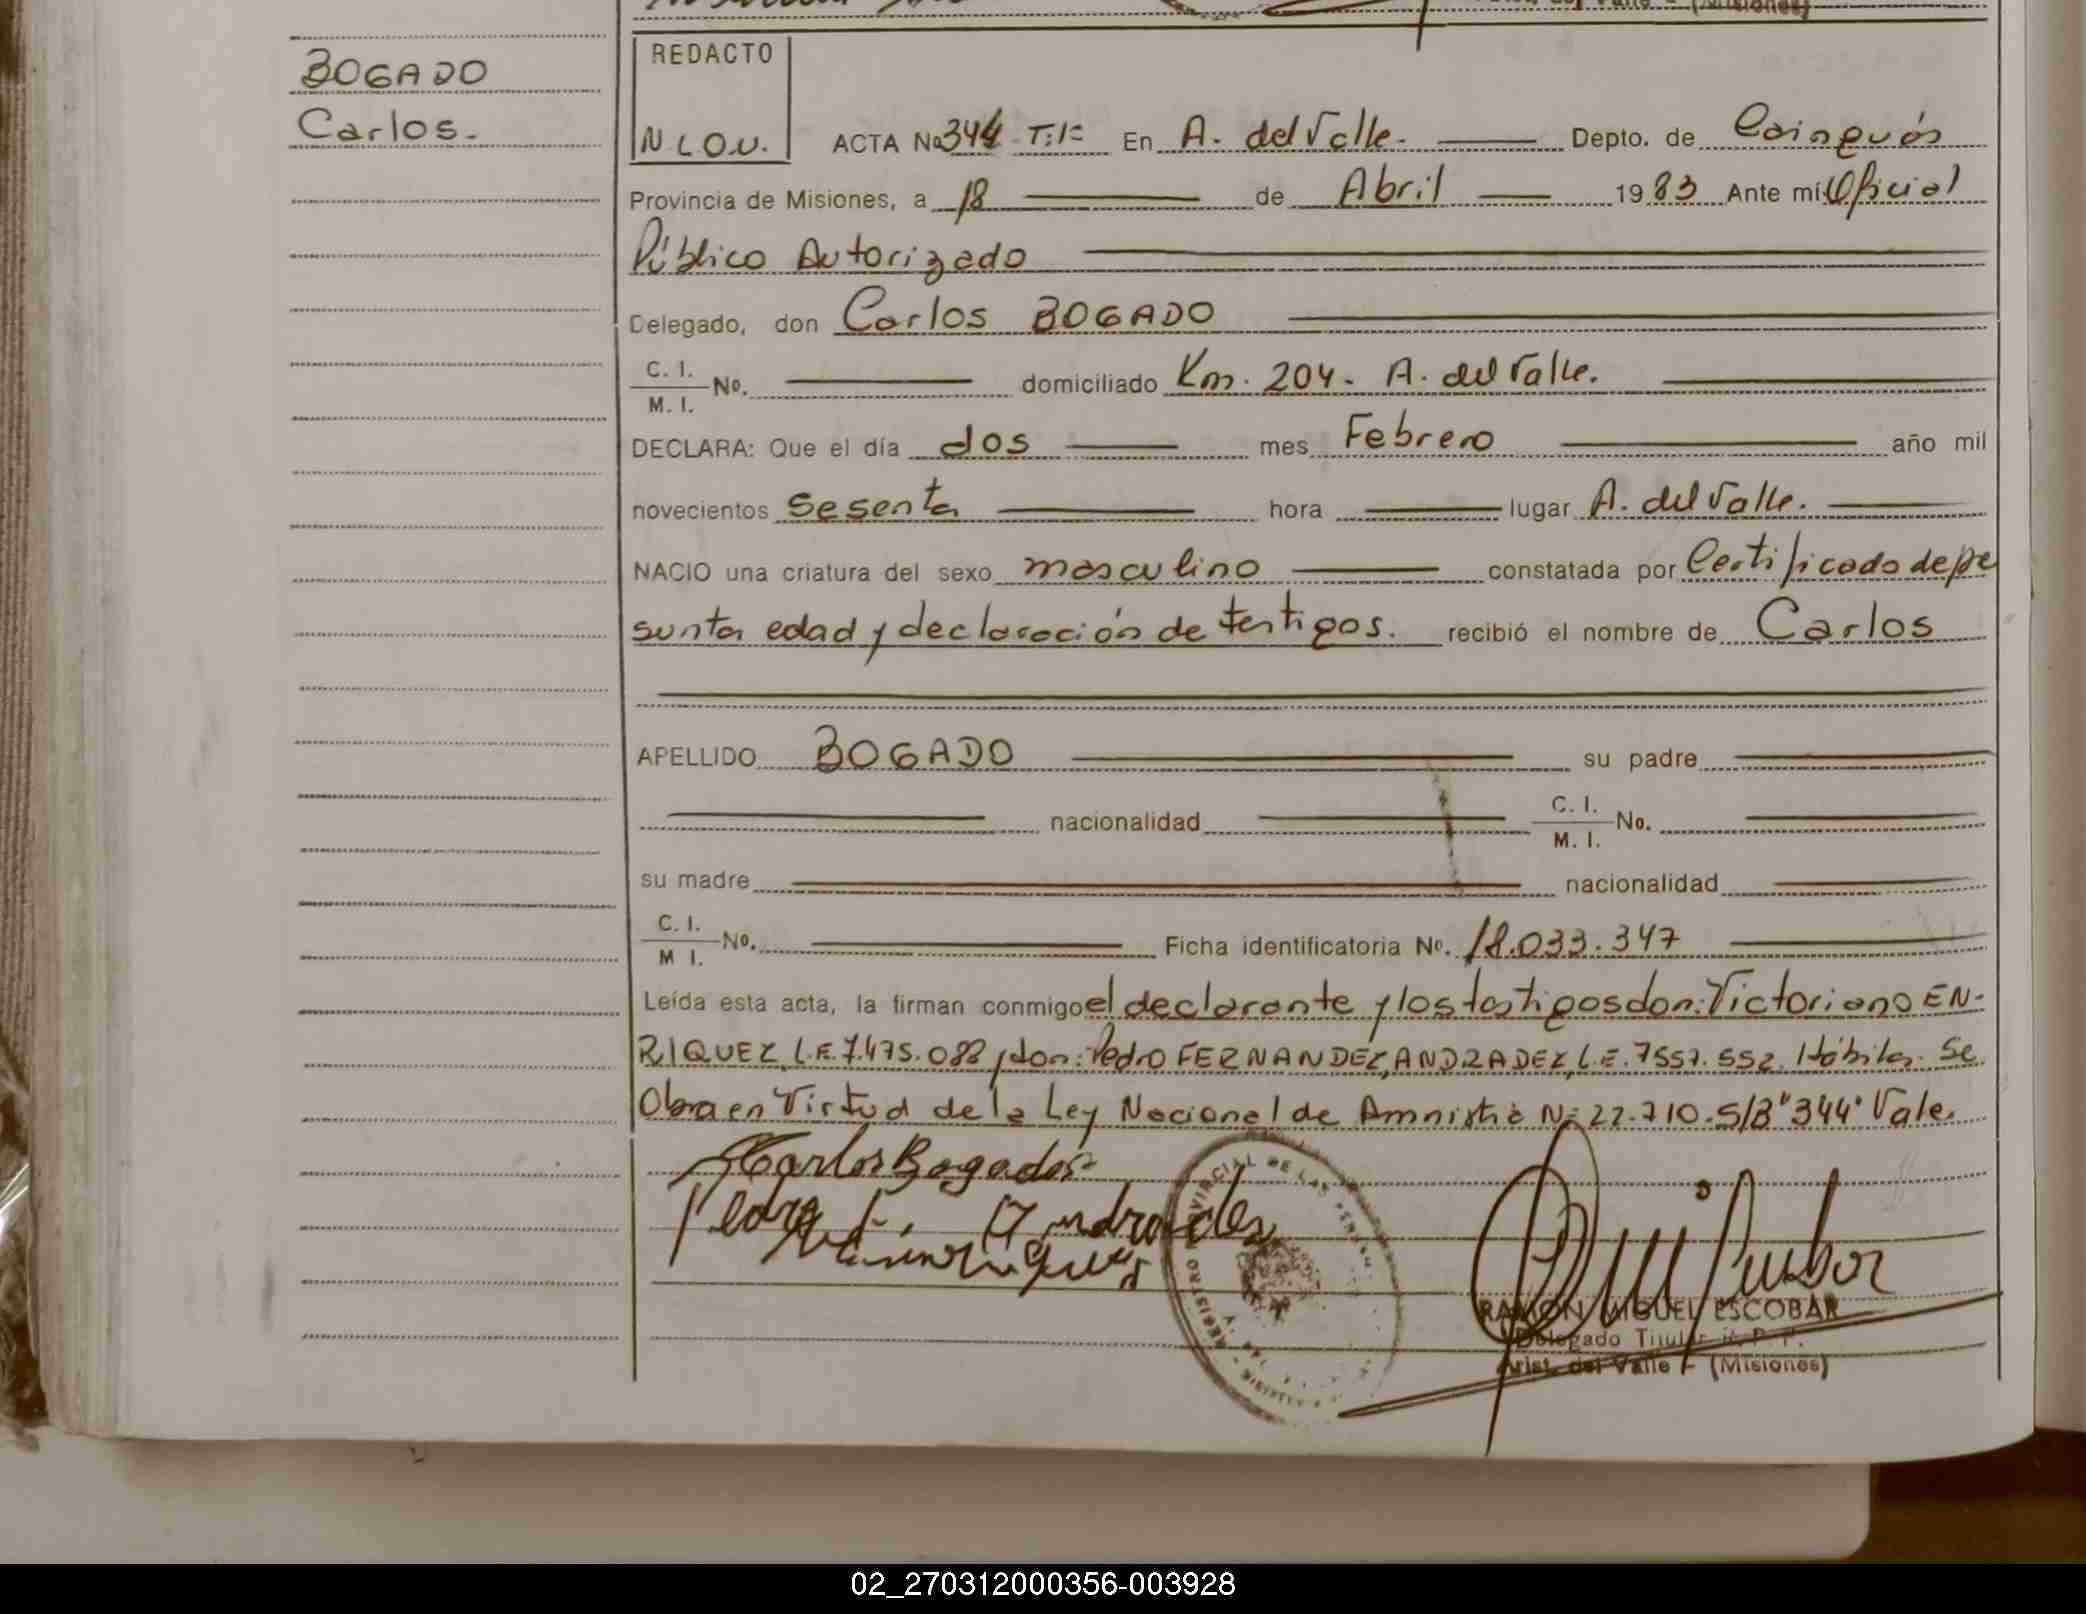 (Misiones)
BOGADO
Carlos.-
REDACTO
N L O.U.
ACTA No 344 T:1= En A. del Valle. Depto. de Cainguás
Provincia de Misiones, a 18 de Abril 1983 Ante mí: Oficial
Público Autorizado
Delegado, don Carlos BOGADO
C. I.
M. I. No. domiciliado Km. 204- A. del Valle.
DECLARA: Que el día dos mes Febrero año mil
novecientos sesenta hora lugar A. del Valle.
NACIO una criatura del sexo masculino constatada por Certificado de pre
sunta edad y declaración de testigos. recibió el nombre de Carlos
APELLIDO BOGADO su padre
nacionalidad C. I.
M. I. No.
su madre nacionalidad
C. I.
M I. No. Ficha identificatoria No. 18.033.347
Leída esta acta, la firman conmigo el declarante y los testigos don: Victoriano EN-
RIQUEZ, L.E. 7.475.088 y don: Pedro FERNANDEZ, ANDRADEZ, L.E. 7557.552. Hábiles. Se
Obra en Virtud de la Ley Nacional de Amnistia Nº 22.710.-S/B "344" Vale.
Carlos Bogado
Pedro F. Andradez
REGISTRO PROVINCIAL DE LAS PERSONAS
RAMON MIGUEL ESCOBAR
Delegado Titular R. P. P.
Arist. del Valle - (Misiones)
02_270312000356-003928